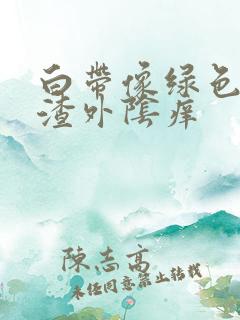 白帶像绿色
渣外陰痒
陳志高
未经同意禁止转载